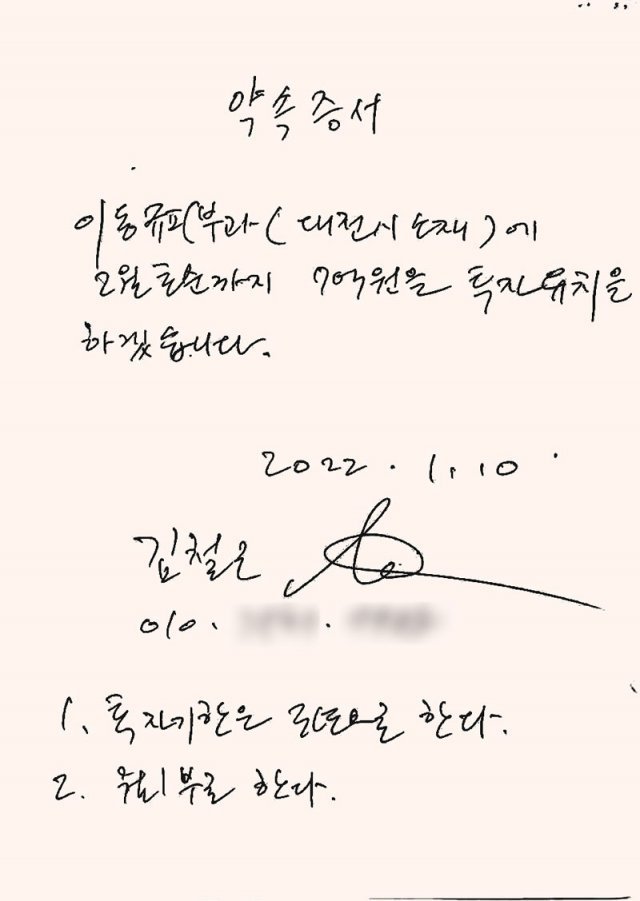 약속증서
이동규피부과(대전시 소재)에
2월초순까지 7억원을 투자유치를
하겠습니다.
2022. 1. 10
김철근
010.
1. 투자기한은 로 한다.
2. 한다.